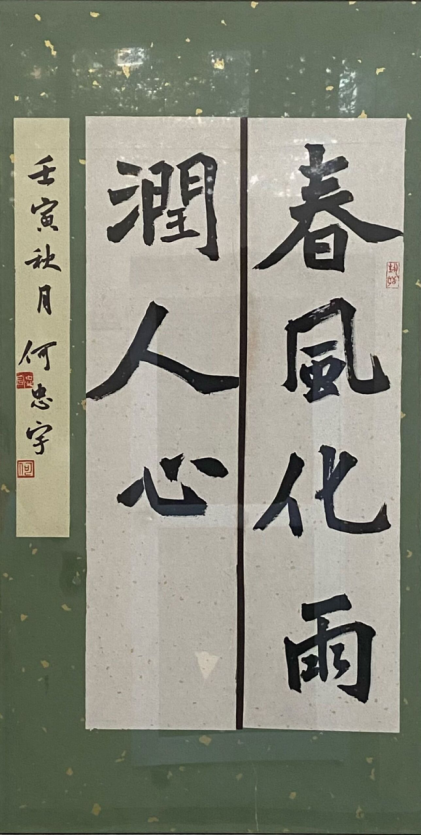 春風化雨
潤人心
壬寅秋月何忠宇